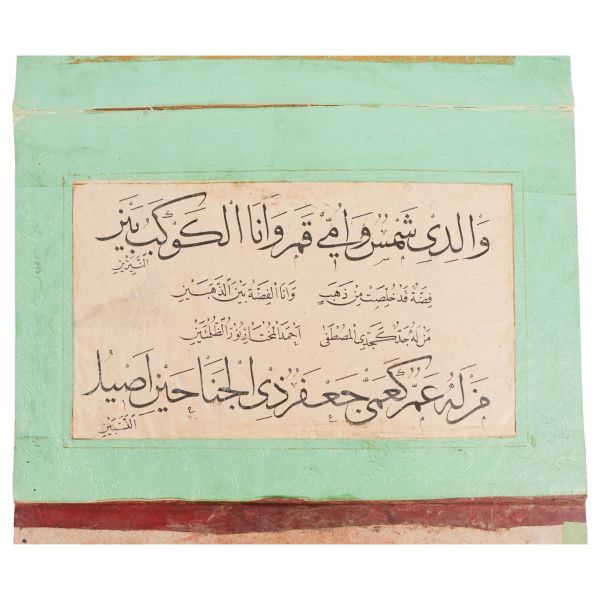 وَالِدِي شَمْسٌ وَاُمِّي قَمَرٌ وَاَنَا الْكَوْكَبُ بَيْنَ
النَّيِّرَيْنِ
فِضَّةٌ قَدْ خَلَصَتْ مِنْ ذَهَبٍ وَاَنَا الْفِضَّةُ بَيْنَ الذَّهَبَيْنِ
مَنْ لَهُ جَدٌّ كَجَدِّي الْمُصْطَفَى اَحْمَدَ الْمُخْتَارِ نُورِ الظُّلْمَتَيْنِ
مَنْ لَهُ عَمٌّ كَعَمِّي جَعْفَرٍ ذِي الْجَنَاحَيْنِ اَصِيلِ
النَّسَبَيْنِ